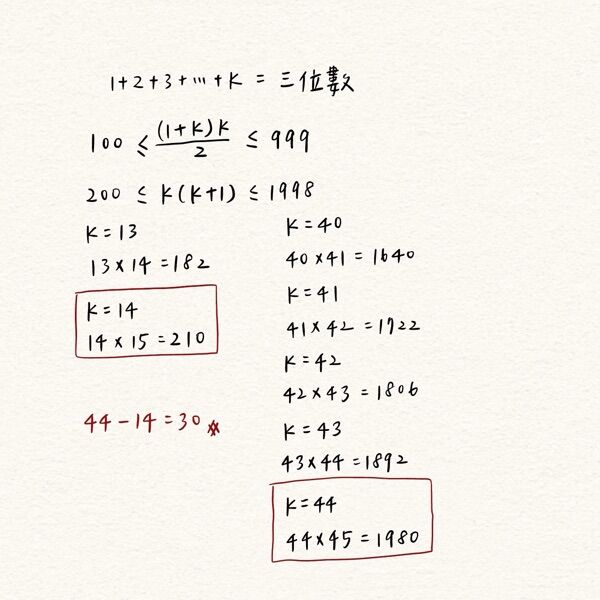 1+2+3+…+K = 三位數
100 ≤ (1+K)K/2 ≤ 999
200 ≤ K(K+1) ≤ 1998
K=13
13×14=182
K=14
14×15=210
44-14=30
K=40
40×41=1640
K=41
41×42=1722
K=42
42×43=1806
K=43
43×44=1892
K=44
44×45=1980